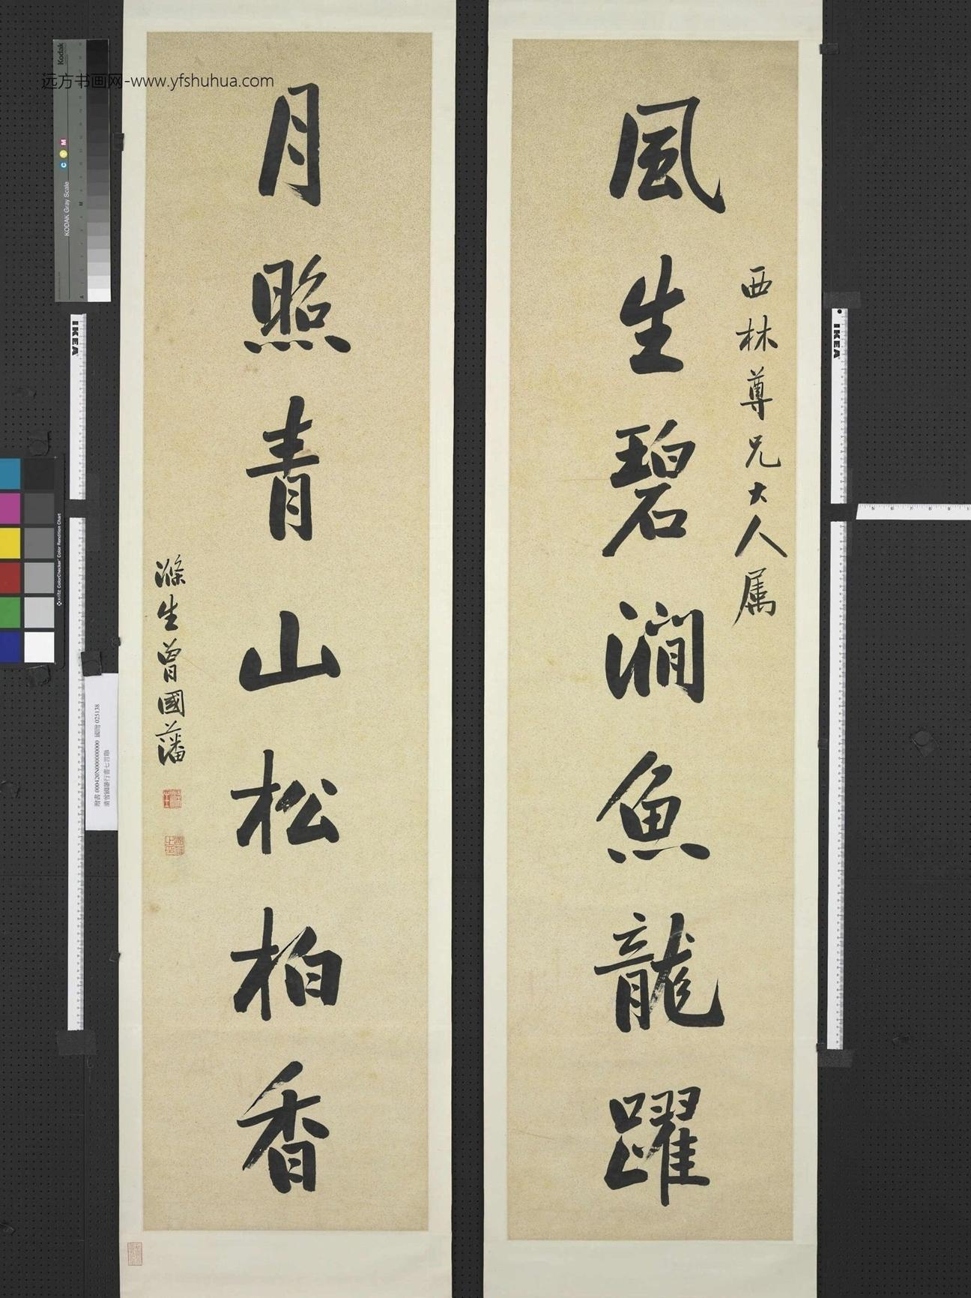 風生碧澗魚龍躍
西林尊兄大人属
月照青山松柏香
滌生曾國藩
远方书画网-www.yfshuhua.com
Kodak
KODAK Gray Scale
C
Y
M
IKEA
IKEA